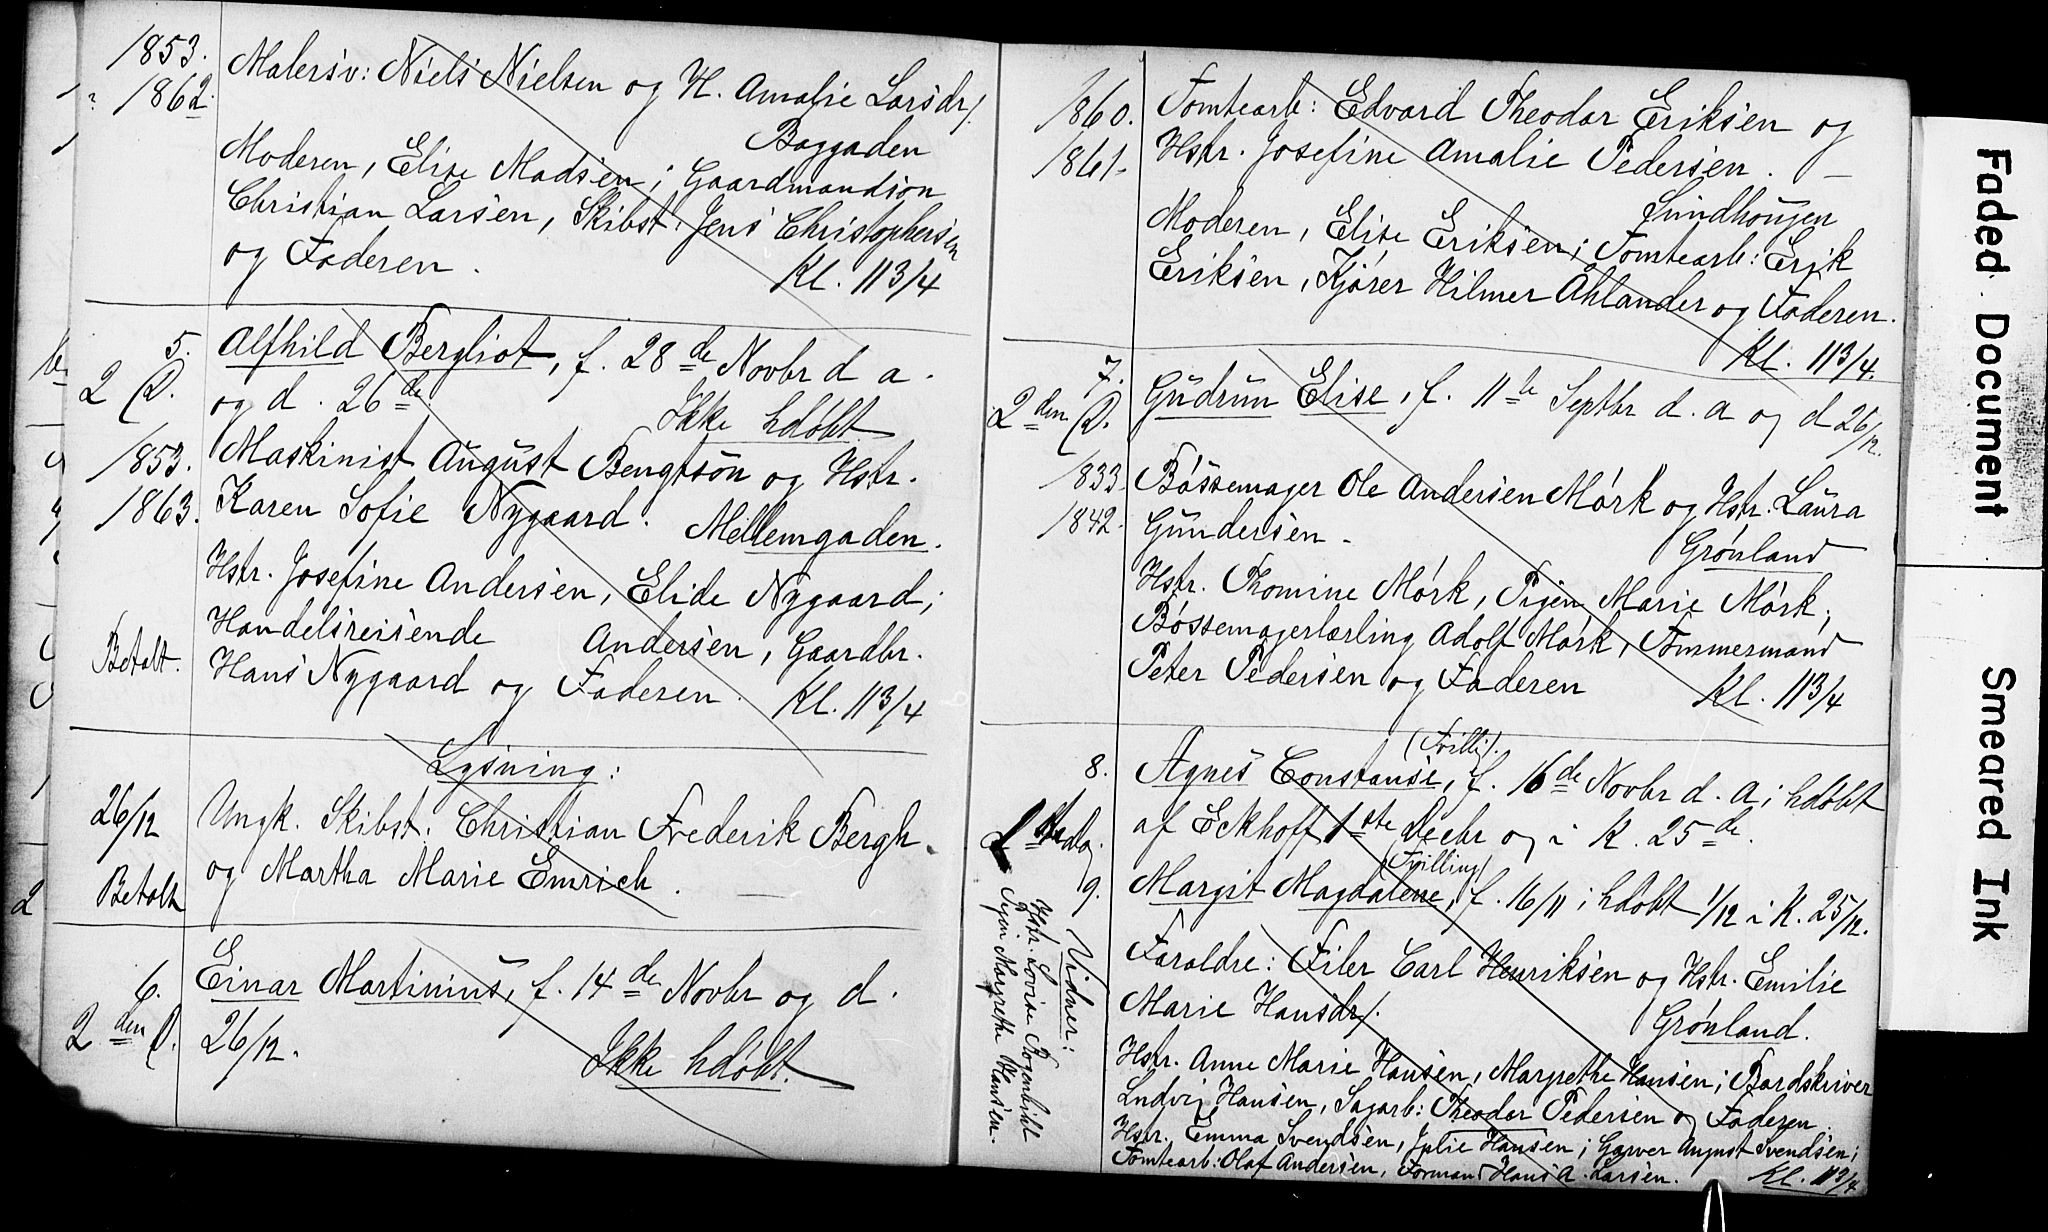 1853. Malersv: Niels Nielsen og H. Amalie Larsdr/.
1862.
Baggaden
Moderen, Elise Madsen; Gaardmandsøn
Christian Larsen, Skibst: Jens Christophersen
og Faderen.
Kl. 11 3/4
5. Alfhild Bergliot, f. 28de Novbr d a.
2 D. og d. 26de
Ikke hdøbt
1853. Maskinist August Bengtsön og Hstr.
1863. Karen Sofie Nygaard.
Mellemgaden.
Hstr. Josefine Andersen, Elide Nygaard;
Handelsreisende Andersen, Gaardbr.
Betalt. Hans Nygaard og Faderen.
Kl. 11 3/4
Lysning:
26/12 Ungk. Skibst. Christian Frederik Bergh
og Martha Marie Emrich.
Betalt
6. Einar Martinius, f. 14de Novbr og d.
2den D. 26/12.
Ikke hdøbt.
1860. Tomtearb: Edvard Theodor Eriksen og
1861. Hstr. Josefine Amalie Pedersen.
Sundhougen
Moderen, Elise Eriksen; Tomtearb: Erik
Eriksen, Kjører Hilmer Åhlander og Faderen.
Kl. 11 3/4.
7. Gudrun Elise, f. 11te Septbr d. a og d 26/12.
2den D.
1833. Bøssemager Ole Andersen Mørk og Hstr. Laura
1842. Gundersen.
Grønland
Hstr. Thomine Mørk, Pigen Marie Mørk;
Bøssemagerlærling Adolf Mørk, Tømmermand
Peter Pedersen og Faderen
Kl. 11 3/4
(Tvilli).
8. Agnes Constanse, f. 16de Novbr d. a; hdøbt
af Eckhoff 1ste Decbr og i K. 25de.
(Tvilling)
9. Margit Magdalene, f. 16/11; hdøbt 1/12 i K. 25/12.
Forældre: Filer Carl Henriksen og Hstr. Emilie
Marie Hansdr/.
Grønland.
Hstr. Anne Marie Hansen, Margrethe Hansen; Bordskriver
Ludvig Hansen, Sagarb: Theodor Pedersen og Faderen.
Hstr. Emma Svendsen, Julie Hansen; Garver August Svendsen;
Tomtearb: Olaf Andersen, Formand Hans A. Larsen.
Kl. 11 3/4
Vidner:
Hstr. Lovise
Pigen Margrethe Hansen.
Faded Document
Smeared Ink